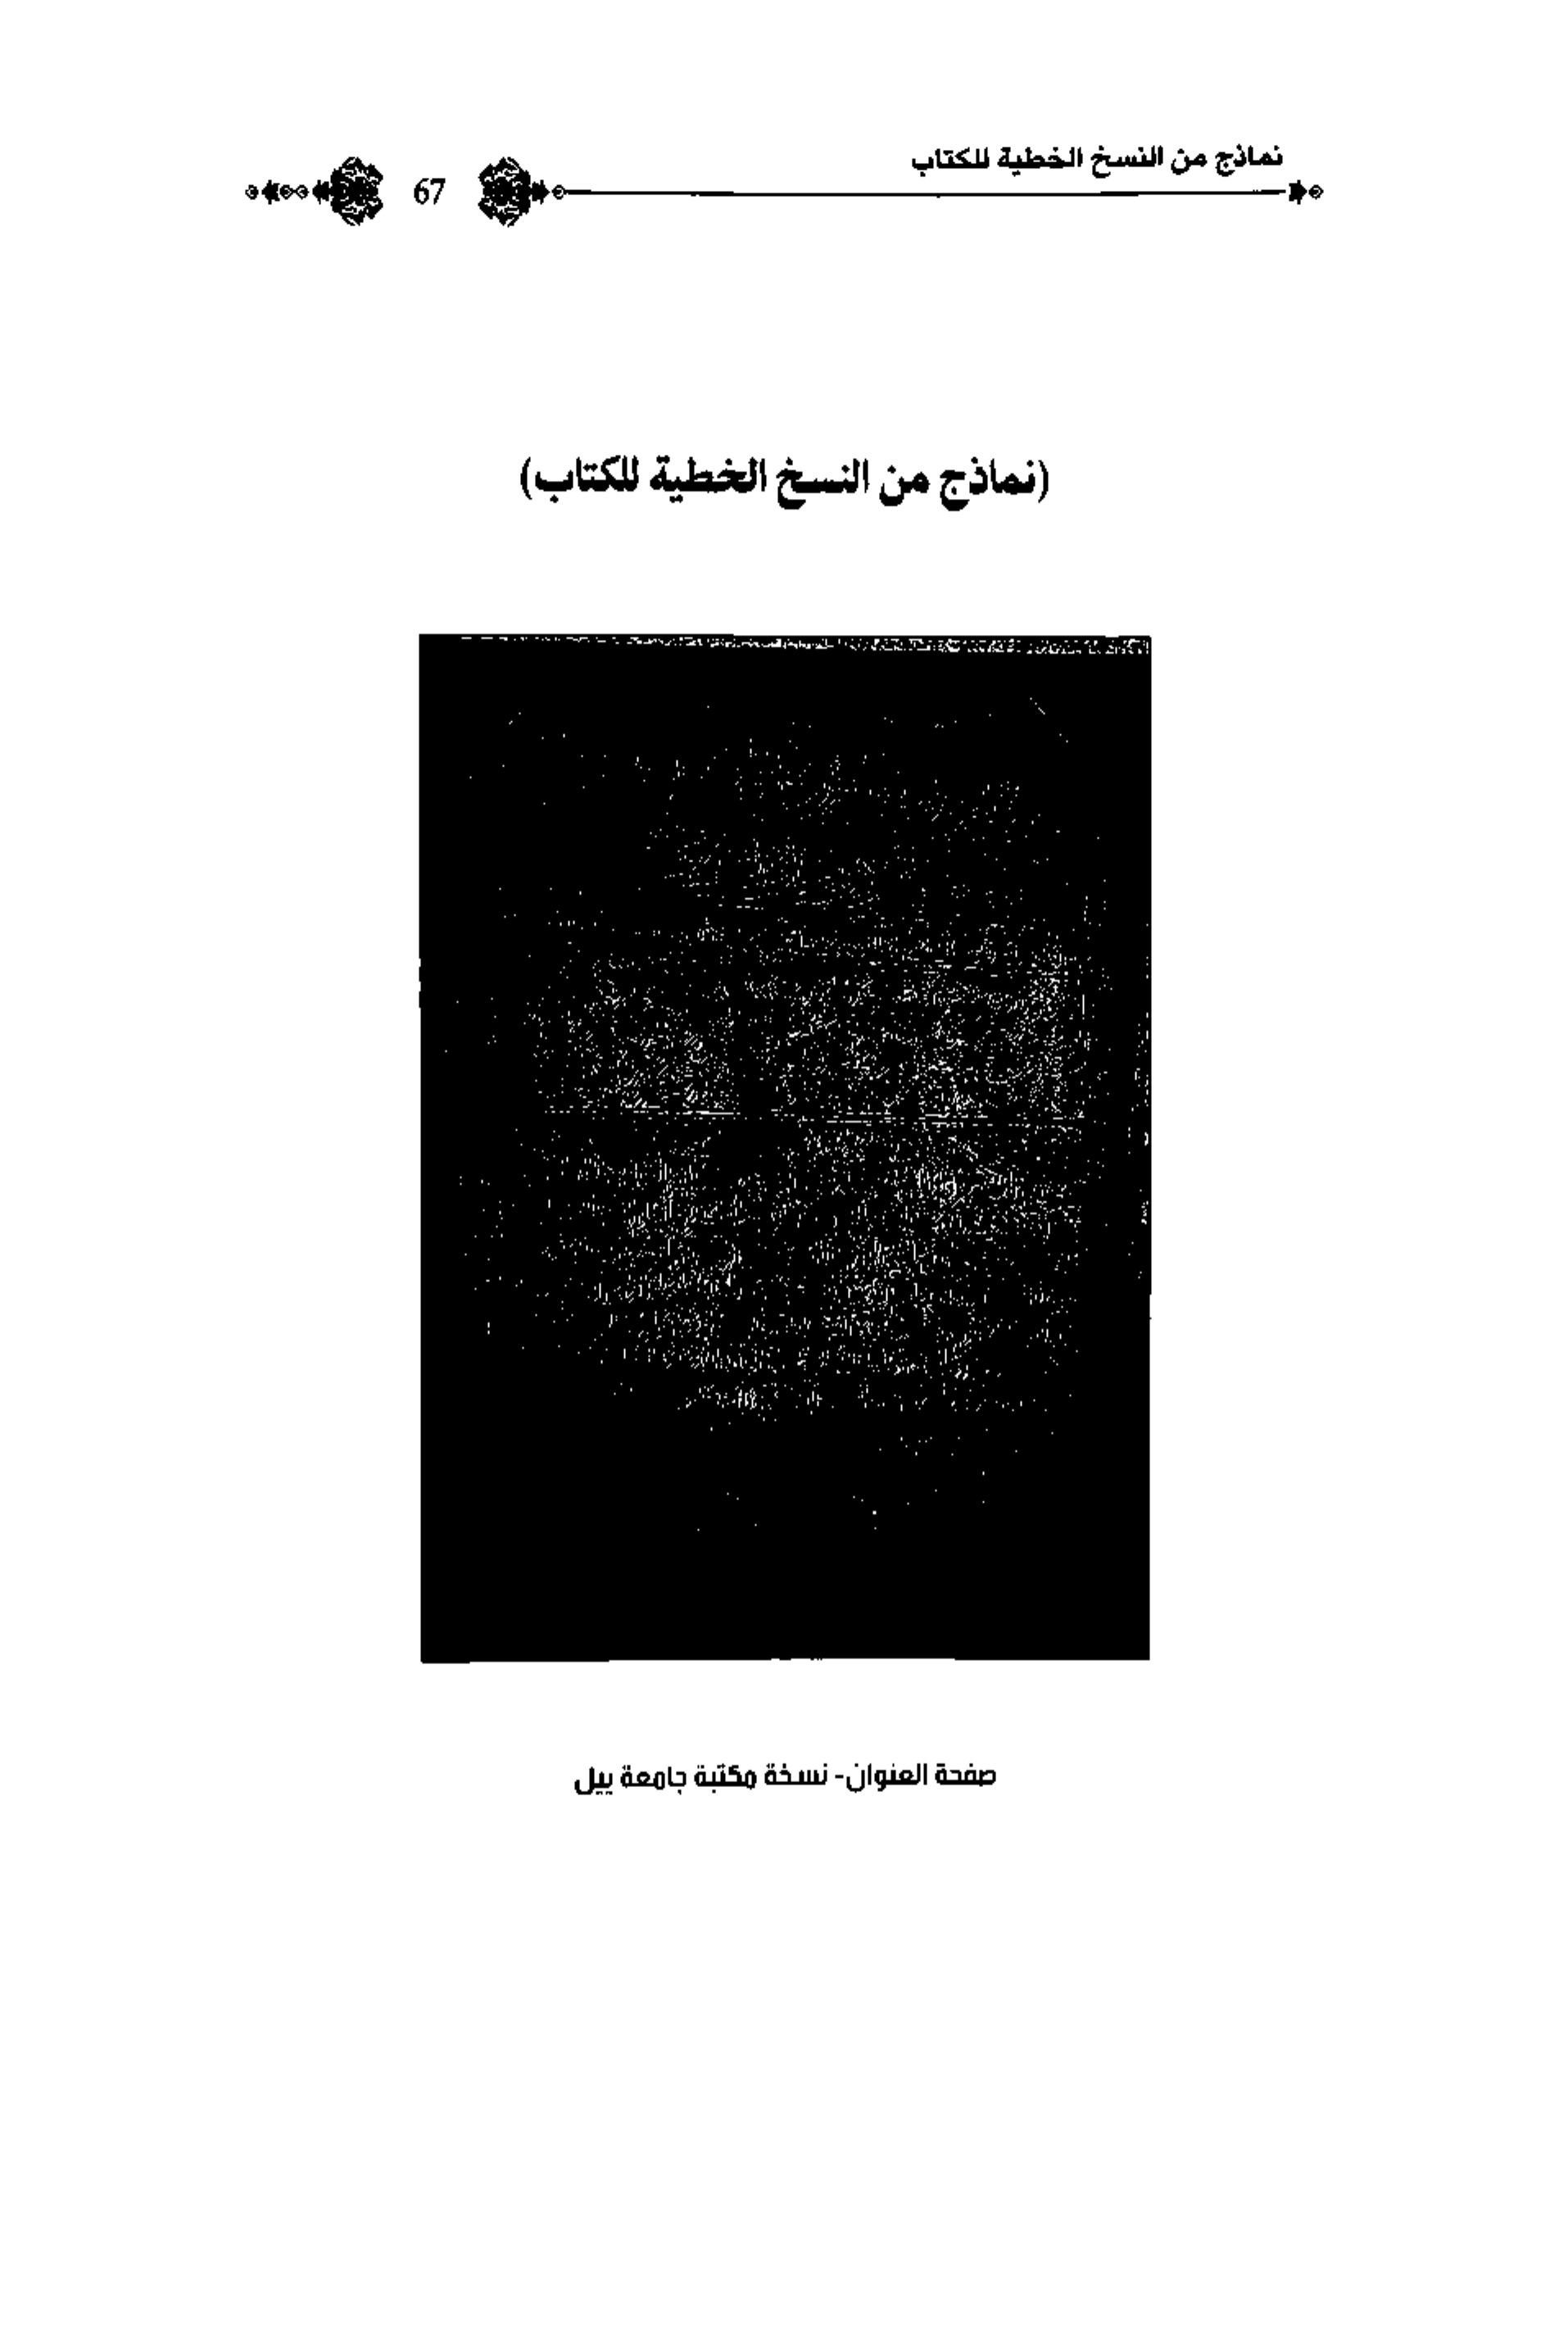 نماذج من النسخ الخطية للكتاب
67
(نماذج من النسخ الخطية للكتاب)
صفحة العنوان- نسخة مكتبة جامعة ييل